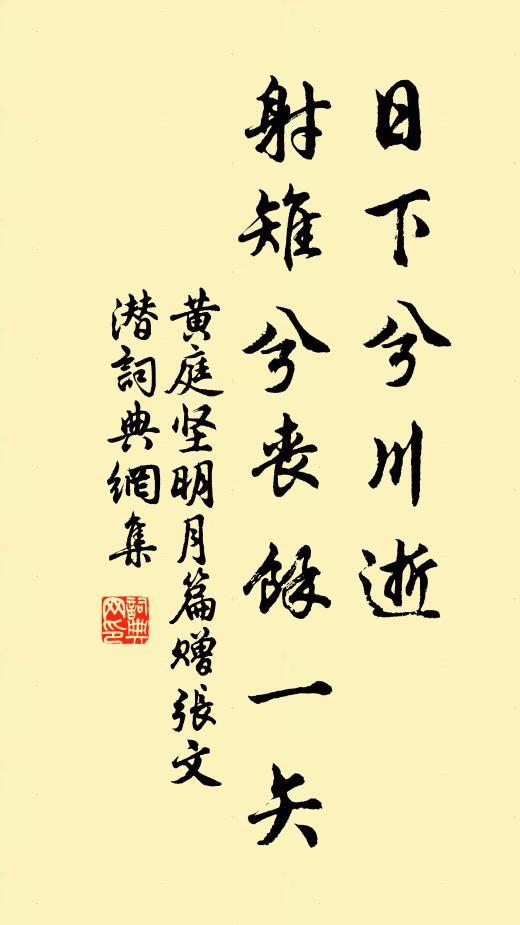 日下兮川逝
射雉兮丧餘一矢
黄庭坚明月篇赠張文
潜詞典網集
詞典
网印